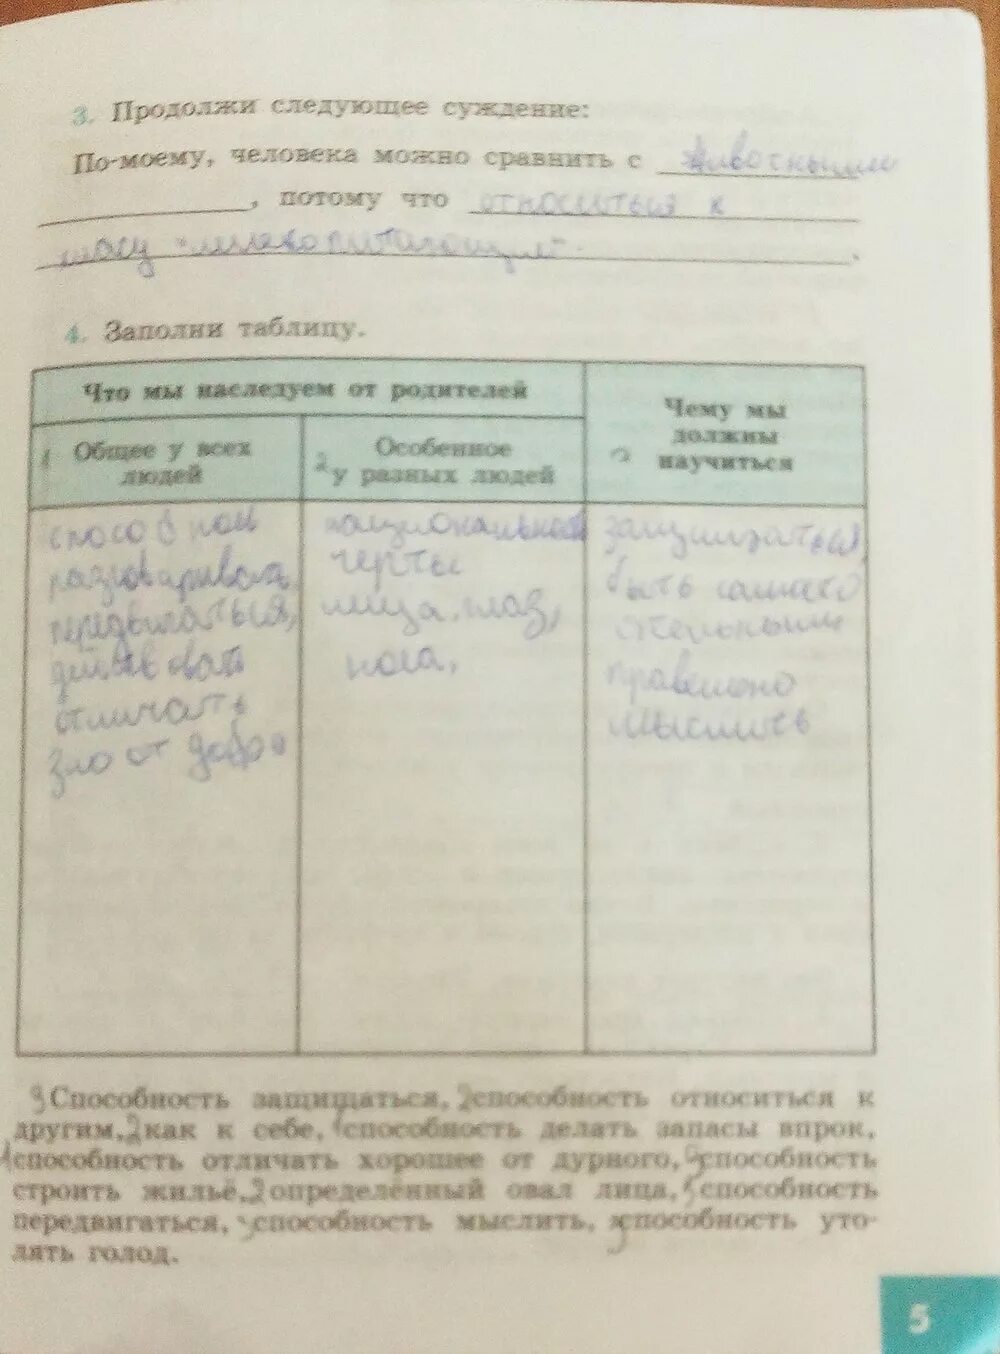 3. Продолжи следующее суждение:
По-моему, человека можно сравнить с животными
, потому что относиться к
"млекопитающим".
4. Заполни таблицу.
Что мы наследуем от родителей
Чему мы
должны
научиться
1 Общее у всех
людей
2 Особенное
у разных людей
3
способном
разговаривать,
передвигаться,
действовать
отличать
зло от добра
национальность
черты
лица, глаз,
носа.
защищаться,
быть
правельно
мыслить
3 Способность защищаться, 2 способность относиться к
другим, 2 как к себе, 1 способность делать запасы впрок,
1 способность отличать хорошее от дурного, способность
строить жильё, 2 определённый овал лица, способность
передвигаться, способность мыслить, способность уто-
лять голод.
5